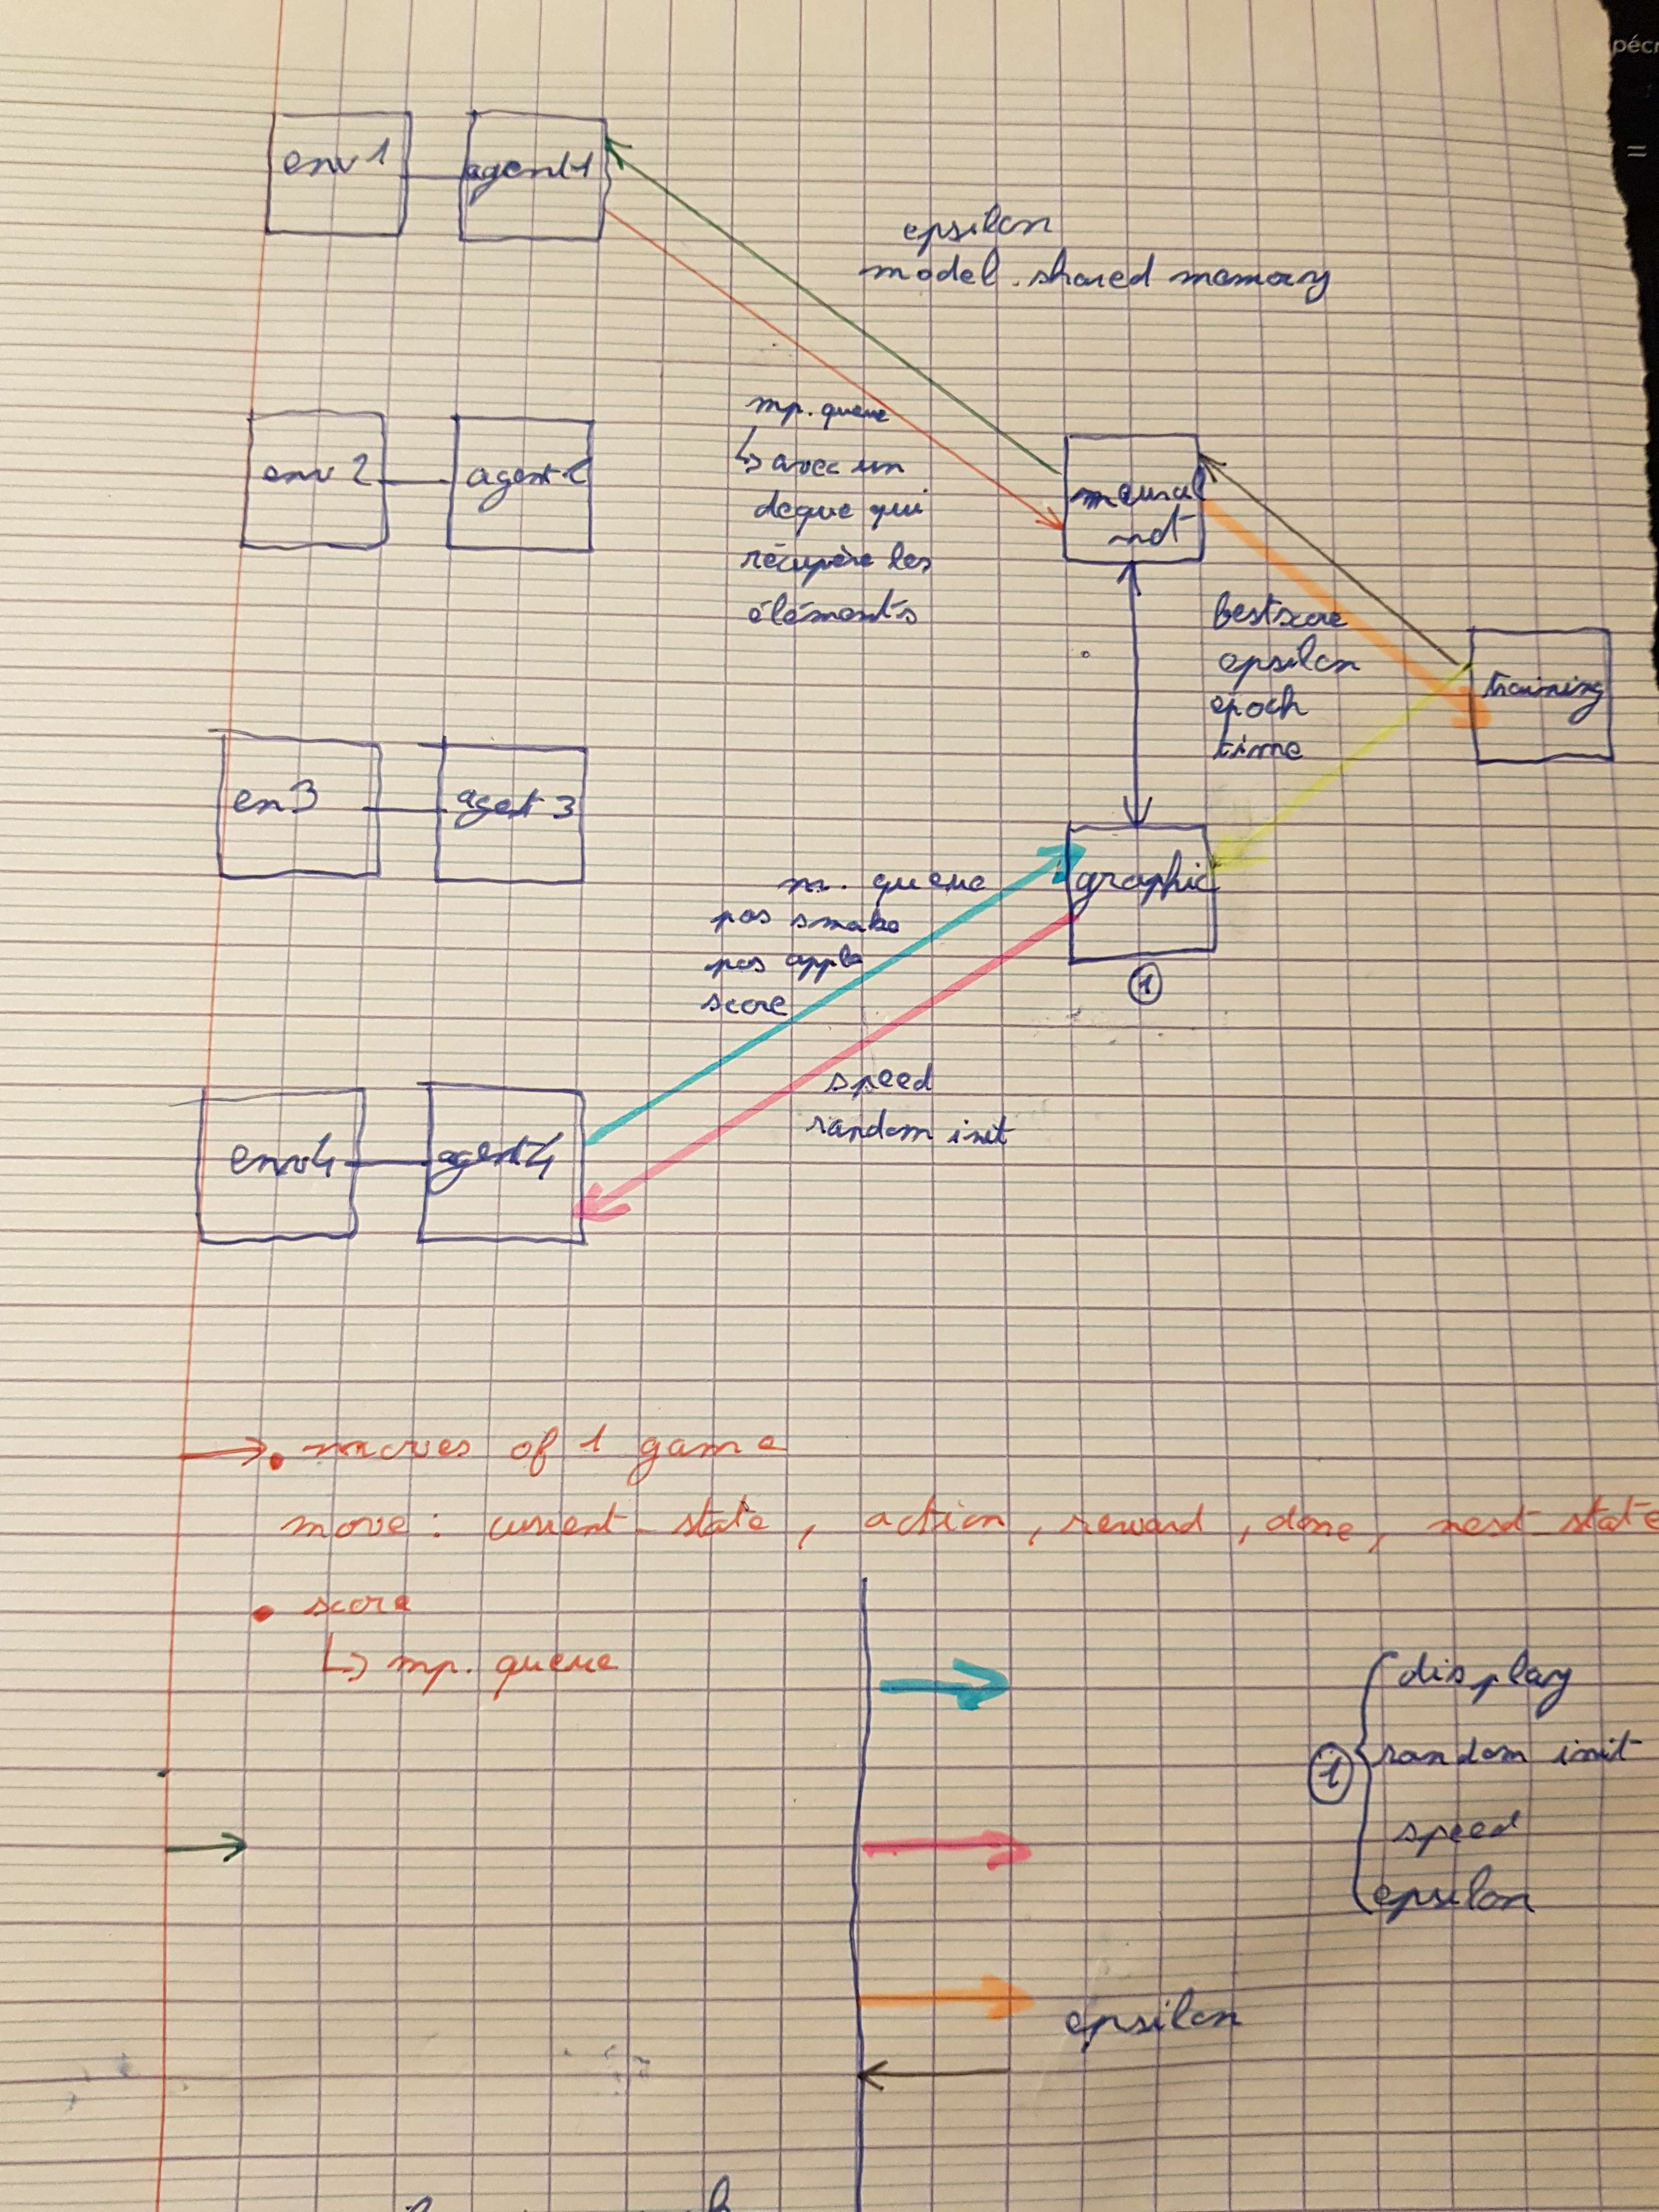 pécr
=
env 1
agent 1
epsilon
model. shared memory
mp. queue
↳ avec un
deque qui
récupère les
éléments
env 2
agent 2
neural
net
bestscore
epsilon
epoch
time
training
en 3
agent 3
graphic
①
m. queue
pos snake
pos apple
score
speed
random init
env 4
agent 4
→ • moves of 1 game
move : current_state, action, reward, done, next_state
• score
↳ mp. queue
① { display
random init
speed
epsilon
epsilon